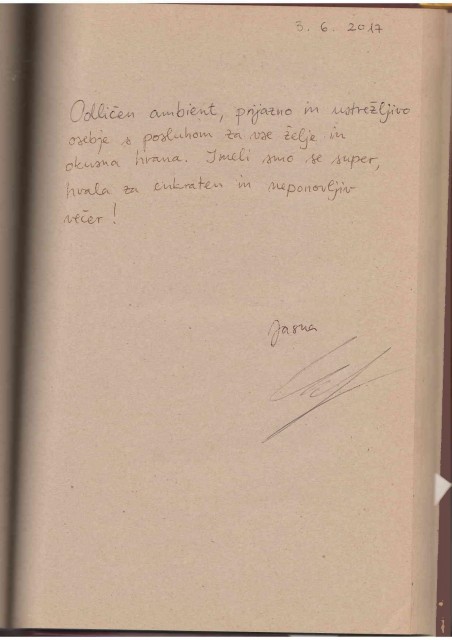 3. 6. 2017
Odličen ambient, prijazno in ustrežljivo
osebje s posluhom za vse želje in
okusna hrana. Imeli smo se super,
hvala za enkraten in neponovljiv
večer!
Jasna